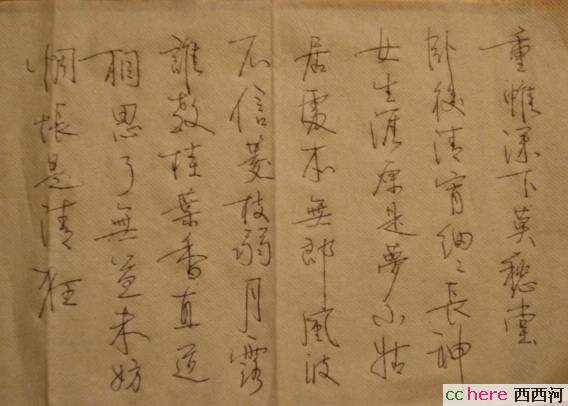 重帷深下莫愁堂
卧後清宵細々長神
女生涯原是夢小姑
居處本無郎風波
不信菱枝弱月露
誰教桂葉香直道
相思了無益未妨
惆悵是清狂
cchere 西西河